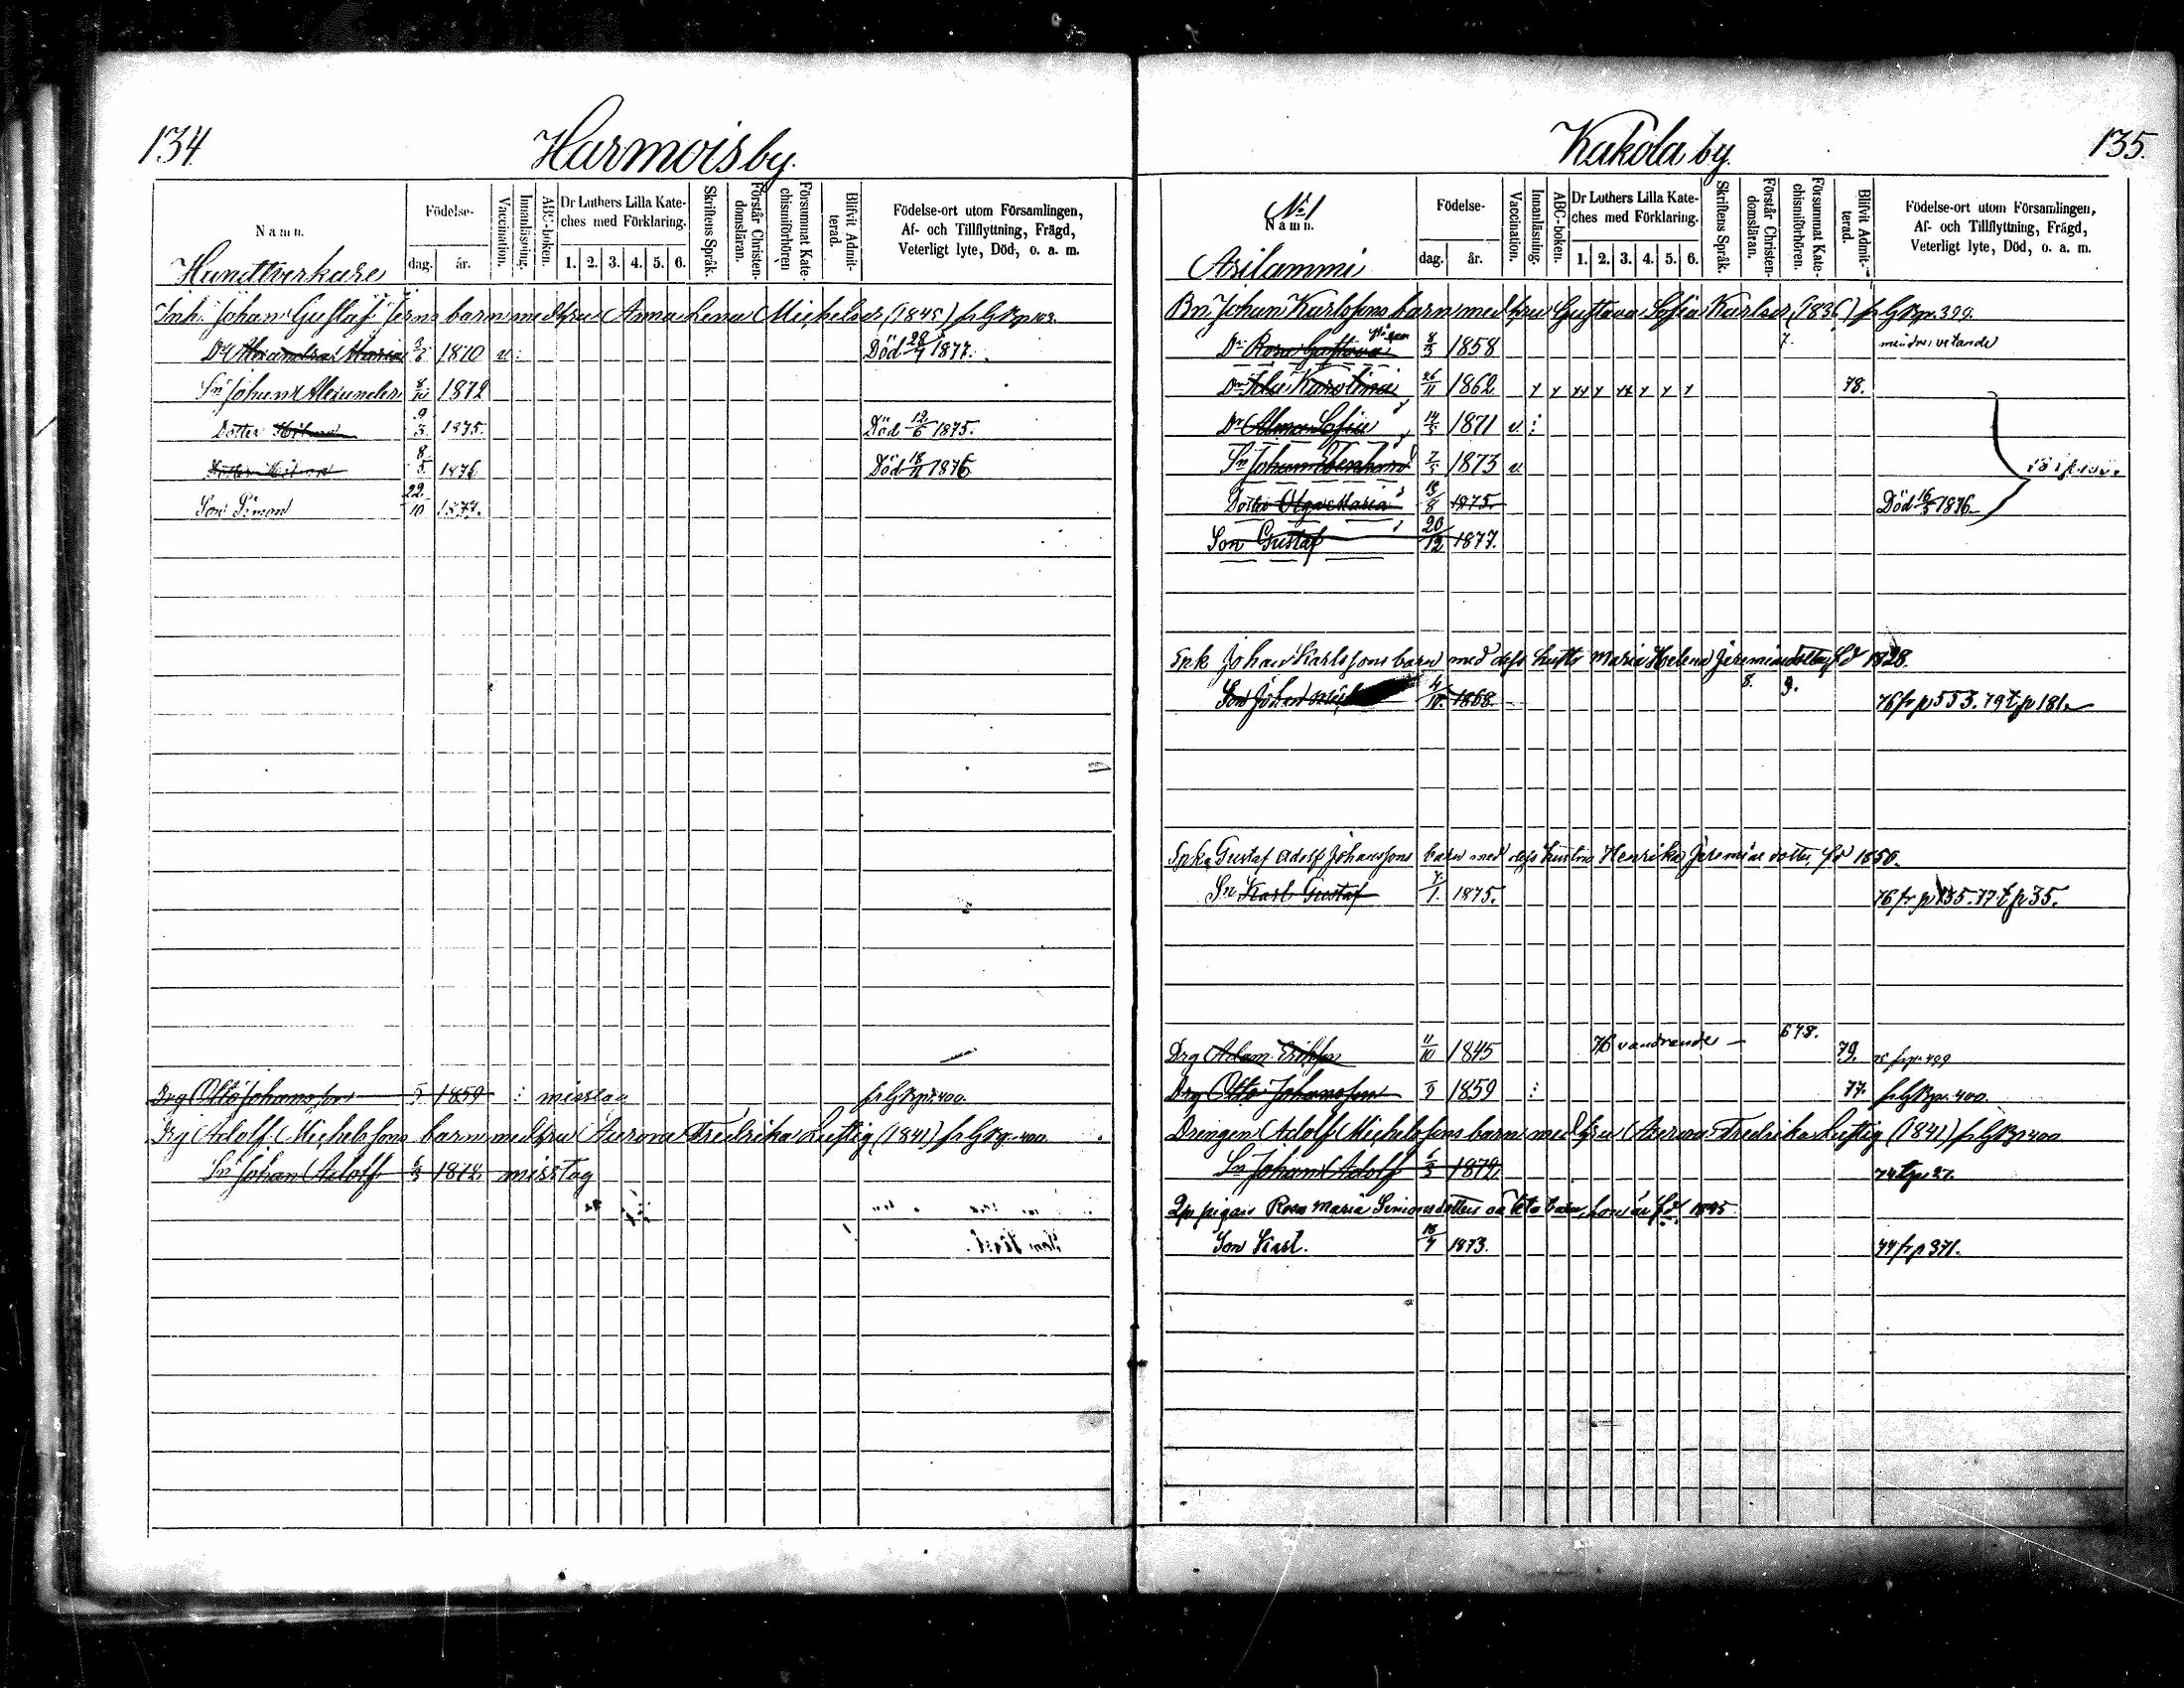 134
Harmois by.
Namn.
Födelse-
dag.
år.
Vaccination.
Innanläsning.
ABC-boken.
Dr Luthers Lilla Kate-
ches med Förklaring.
1. 2. 3. 4. 5. 6.
Skriftens Språk.
Förstår Christen-
domsläran.
Försummat Kate-
chismiförhören
Blifvit Admit-
terad.
Födelse-ort utom Församlingen,
Af- och Tillflyttning, Frägd,
Veterligt lyte, Död, o. a. m.
Handtverkare
Johan Gustaf barn med hru Anna Lena Michelsdr (1845)
Dr Alexandra Maria 1870 v : Död 28/7 1877.
Sn Johan Alexander 1872
Dotter 9/3 1875. Död 19/6 1875.
8/5 1876 Död 18/11 1876
Son Simon 22/10 1877.
Drg Otto Johansson 1859 : misstag fr G Bp. 400.
Drg Adolf Michelssons barn med hru Aurora Fredrika Luftig (1841) fr G Bp. 400
Sn Johan Adolf 6/3 1872. misstag
Kakola by.
135.
No 1
Namn.
Födelse-
dag.
år.
Vaccination.
Innanläsning.
ABC-boken.
Dr Luthers Lilla Kate-
ches med Förklaring.
1. 2. 3. 4. 5. 6.
Skriftens Språk.
Förstår Christen-
domsläran.
Försummat Kate-
chismiförhören.
Blifvit Admit-
terad.
Födelse-ort utom Församlingen,
Af- och Tillflyttning, Frägd,
Veterligt lyte, Död, o. a. m.
Asilammi
Bn. Johan Karlssons barn med hru Gustava Sofia Karlsdr (1836) fr G Bp. 399.
Dr Rosa Gustava 8/3 1858 7.
Dr Ida Karolina 26/11 1862 78.
Dr Alma Sofia 14/3 1871 v :
Sn Johan 7/5 1873 v
Dotter Olga Maria 1875. Död 16/5 1876
Son Gustaf 20/12 1877.
Spk Johan Karlssons barn med dess hustr Maria Helena Jeremiædotter, fd 1828.
Son Johan 4/10. 1868. 8. 9. 76 fr p 553. 79 t p 181
Spk. Gustaf Adolf Johanssons barn med dess hustru Henrika Jeremiæ dotter, fd 1850.
Sn Karl Gustaf 7/1. 1875. 76 fr p 135. 77 t p 35.
Drg Adam Eriksson 11/10 1845 76 vandrande 678. 79.
Drg Otto Johansson 1859 : 77. fr G Bp. 400.
Drengen Adolf Michelssons barn med hru Aurora Fredrika Luftig (1841) fr G Bp. 400
Sn Johan Adolf 6/3 1872. 74 t p. 27.
Qp pigan Rosa Maria Simonsdotters oäkta barn, hon är fd 1845
Son Karl. 18/7 1873. 77 fr p 371.